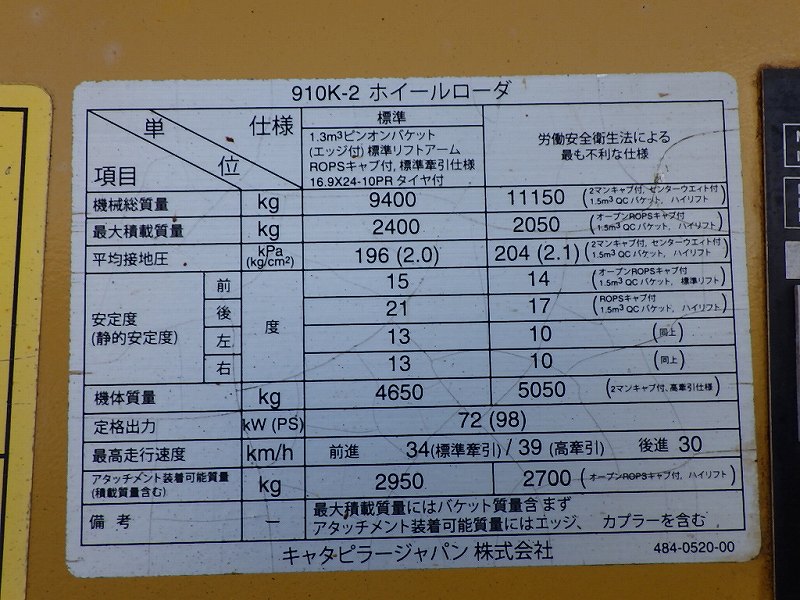 910K-2 ホイールローダ
単 位 仕様
項目
標準
1.3m³ピンオンバケット
(エッジ付) 標準リフトアーム
ROPSキャブ付, 標準牽引仕様
16.9X24-10PR タイヤ付
労働安全衛生法による
最も不利な仕様
機械総質量 kg 9400 11150 (2マンキャブ付, センターウエイト付 1.5m³ QC バケット, ハイリフト)
最大積載質量 kg 2400 2050 (オープンROPSキャブ付 1.5m³ QC バケット, ハイリフト)
平均接地圧 kPa (kg/cm²) 196 (2.0) 204 (2.1) (2マンキャブ付, センターウエイト付 1.5m³ QC バケット, ハイリフト)
安定度
(静的安定度)
度
前 15 14 (オープンROPSキャブ付 1.5m³ QC バケット, 標準リフト)
後 21 17 (ROPSキャブ付 1.5m³ QC バケット, ハイリフト)
左 13 10 (同上)
右 13 10 (同上)
機体質量 kg 4650 5050 (2マンキャブ付, 高牽引仕様)
定格出力 kW (PS) 72 (98)
最高走行速度 km/h 前進 34(標準牽引) / 39 (高牽引) 後進 30
アタッチメント装着可能質量
(積載質量含む)
kg 2950 2700 (オープンROPSキャブ付, ハイリフト)
備考 － 最大積載質量にはバケット質量含まず
アタッチメント装着可能質量にはエッジ、 カプラーを含む
キャタピラージャパン 株式会社
484-0520-00